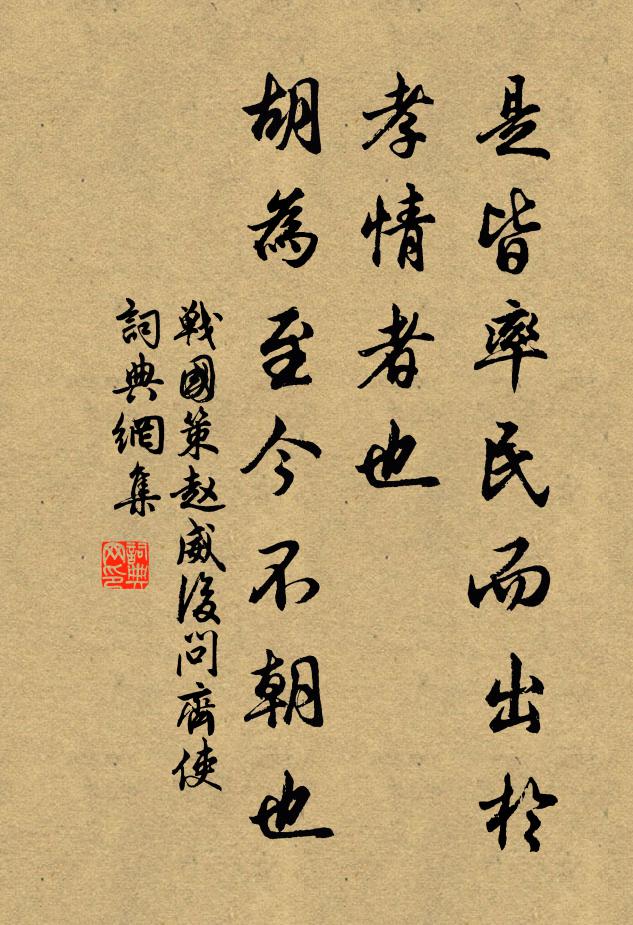 是皆率民而出於
孝情者也
胡為至今不朝也
戰國策赵威後問齊使
詞典網集
詞典
网印